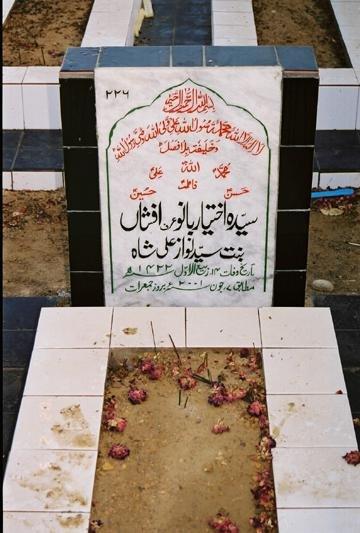 ۲۲۶
بسم اللہ الرحمن الرحیم
لا الہ الا اللہ محمد رسول اللہ علی ولی اللہ وصی رسول اللہ
وخلیفتہ بلا فصل
اللہ
محمدؐ علیؑ
فاطمہؑ
حسنؑ حسینؑ
سیدہ اختیار بانو عرف افشاں
بنت سید نواز علی شاہ
تاریخ وفات ۱۴ ربیع الاول ۱۴۲۲ھ
مطابق ۷ جون ۲۰۰۱ء بروز جمعرات